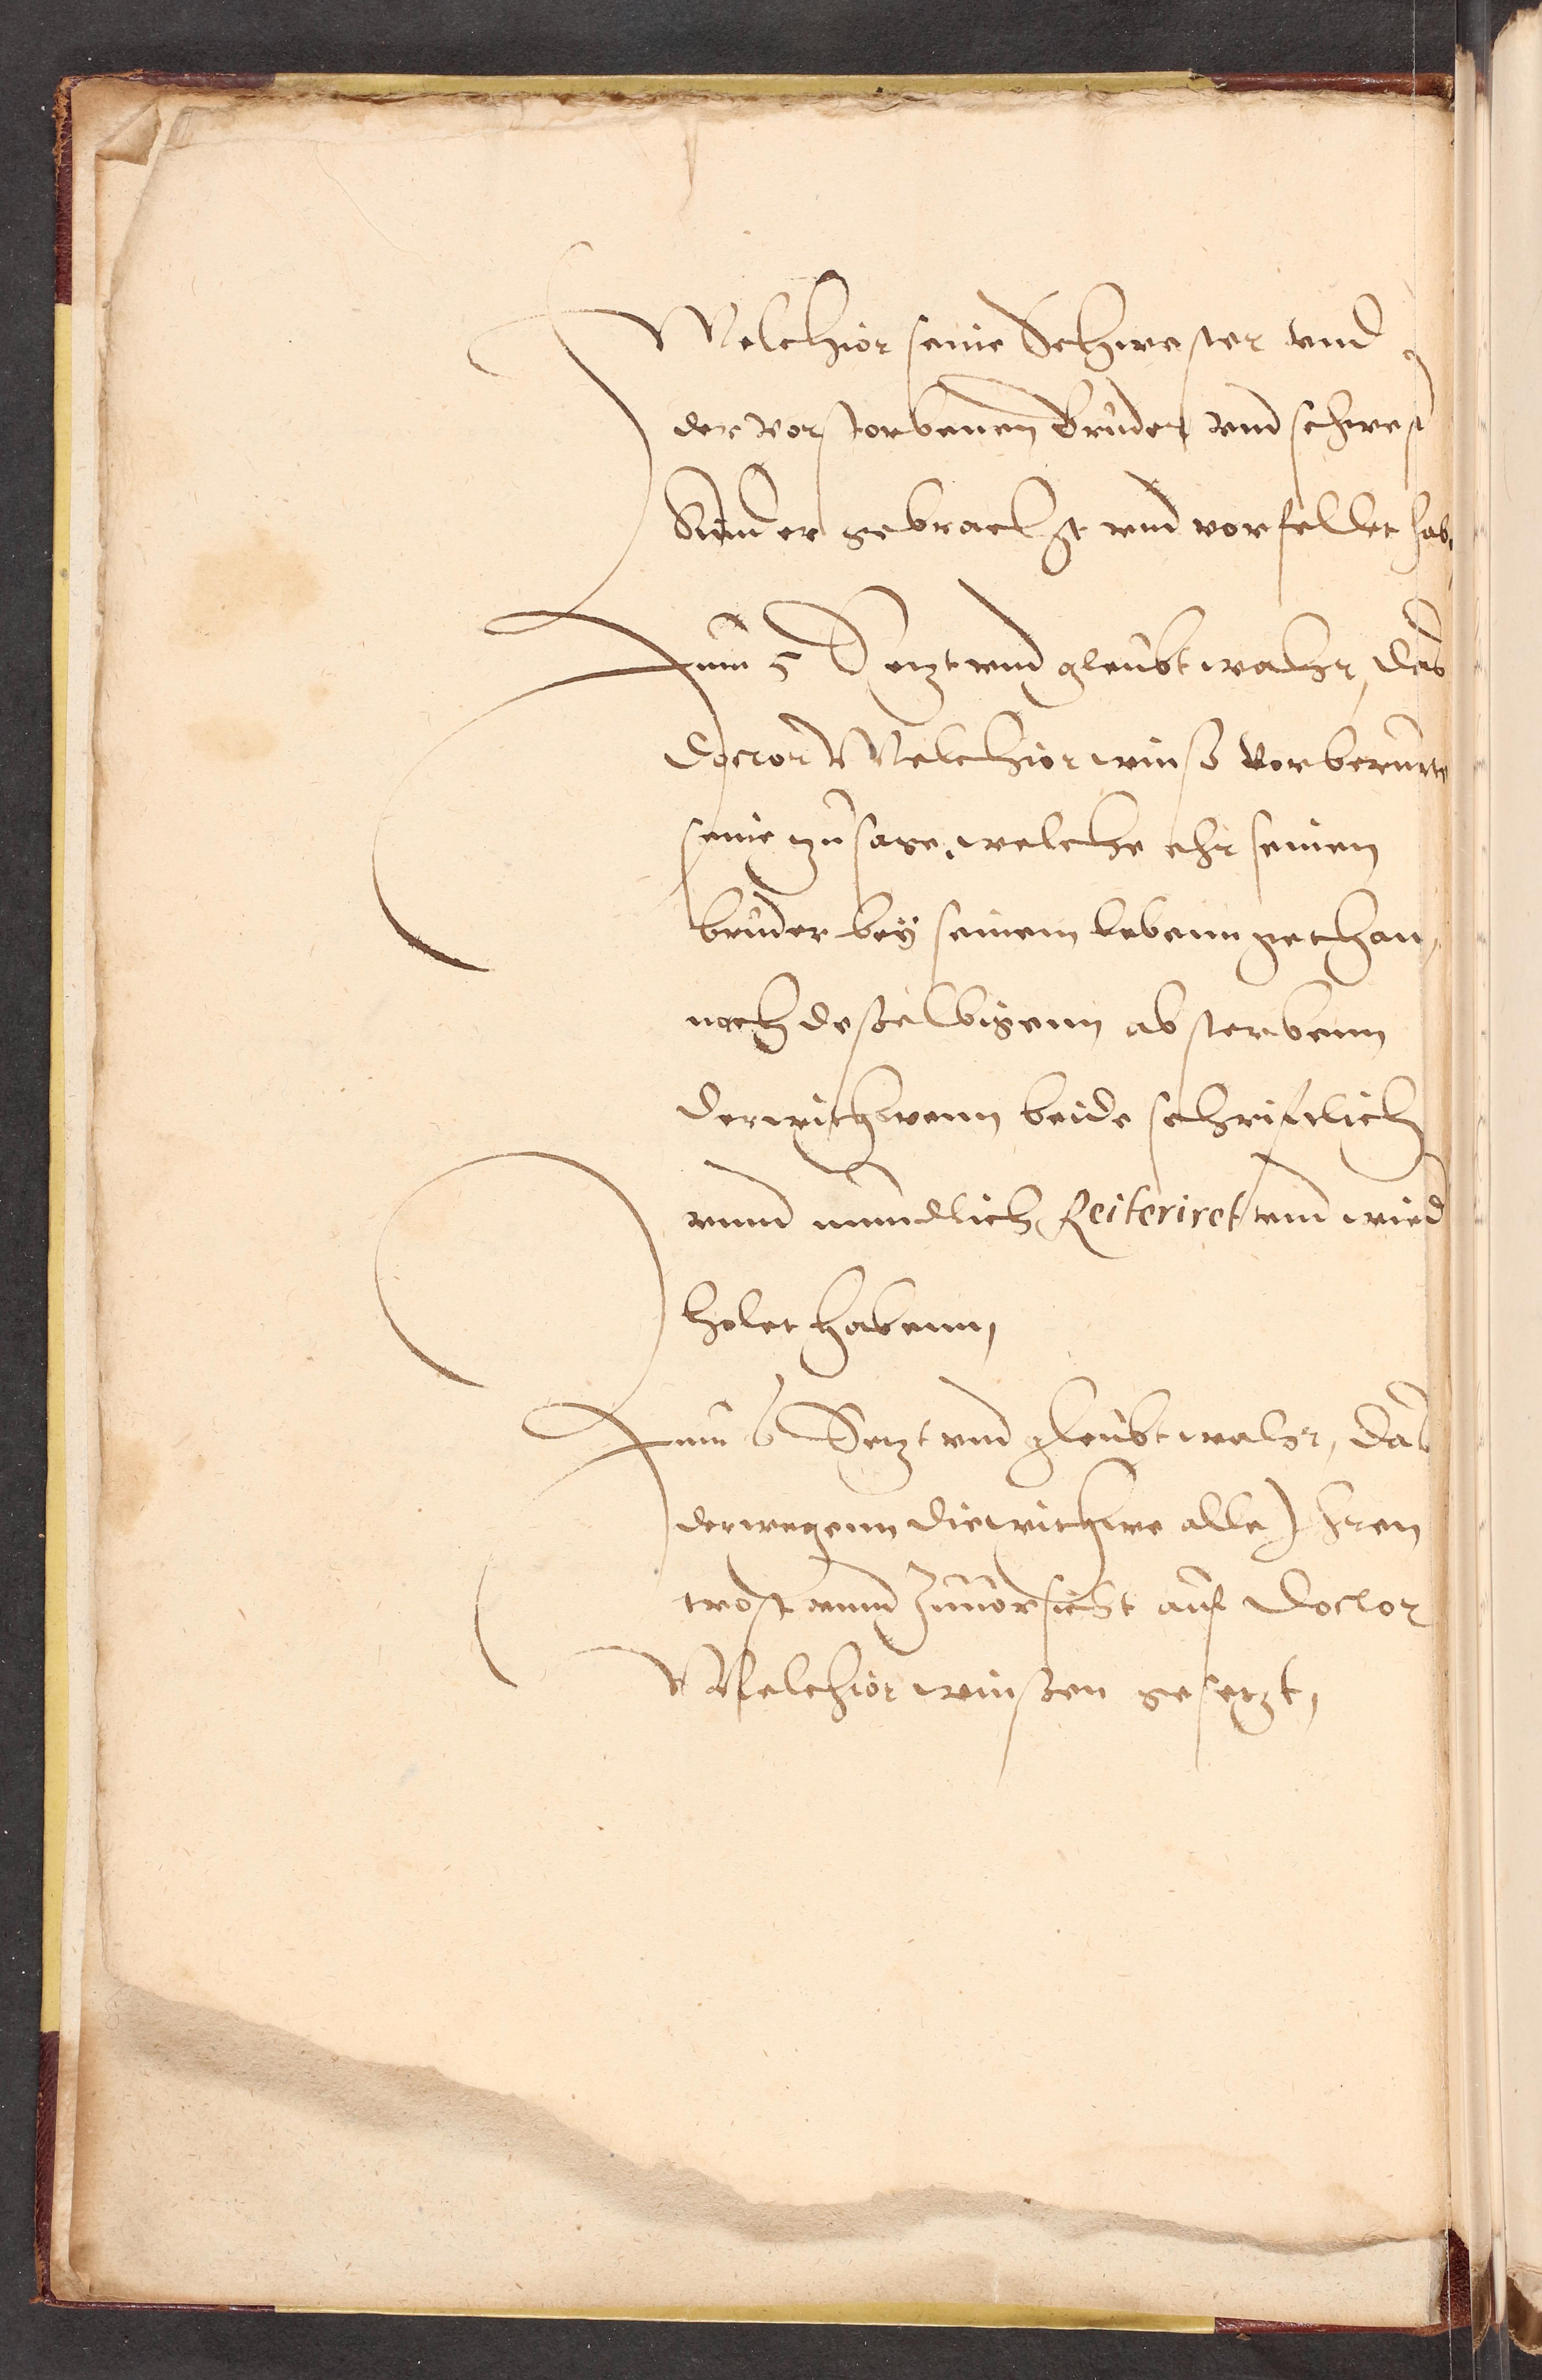 Melchior seine Schwester vnd
der vorstorbenen bruder vnd schwest
Kinder gebracht vnd vorfellet hab
Zum 5 Setzt vnd gleubt wahr, das
Doctor Melchior winß vorberurte
seine zusage, welche ehr seinen
bruder bey seinem lebenn gethan,
nach deßelbigenn absterbenn
der withwenn beide schrifftlich
vnnd mundlich Reiteriret vnd wied
holet habenn,
Zum 6 Setzt vnd gleubt wahr, das
derwegenn die withwe alle Jren
trost vnnd Zuuorsicht auf Doctor
Melchior winßen gesetzt,